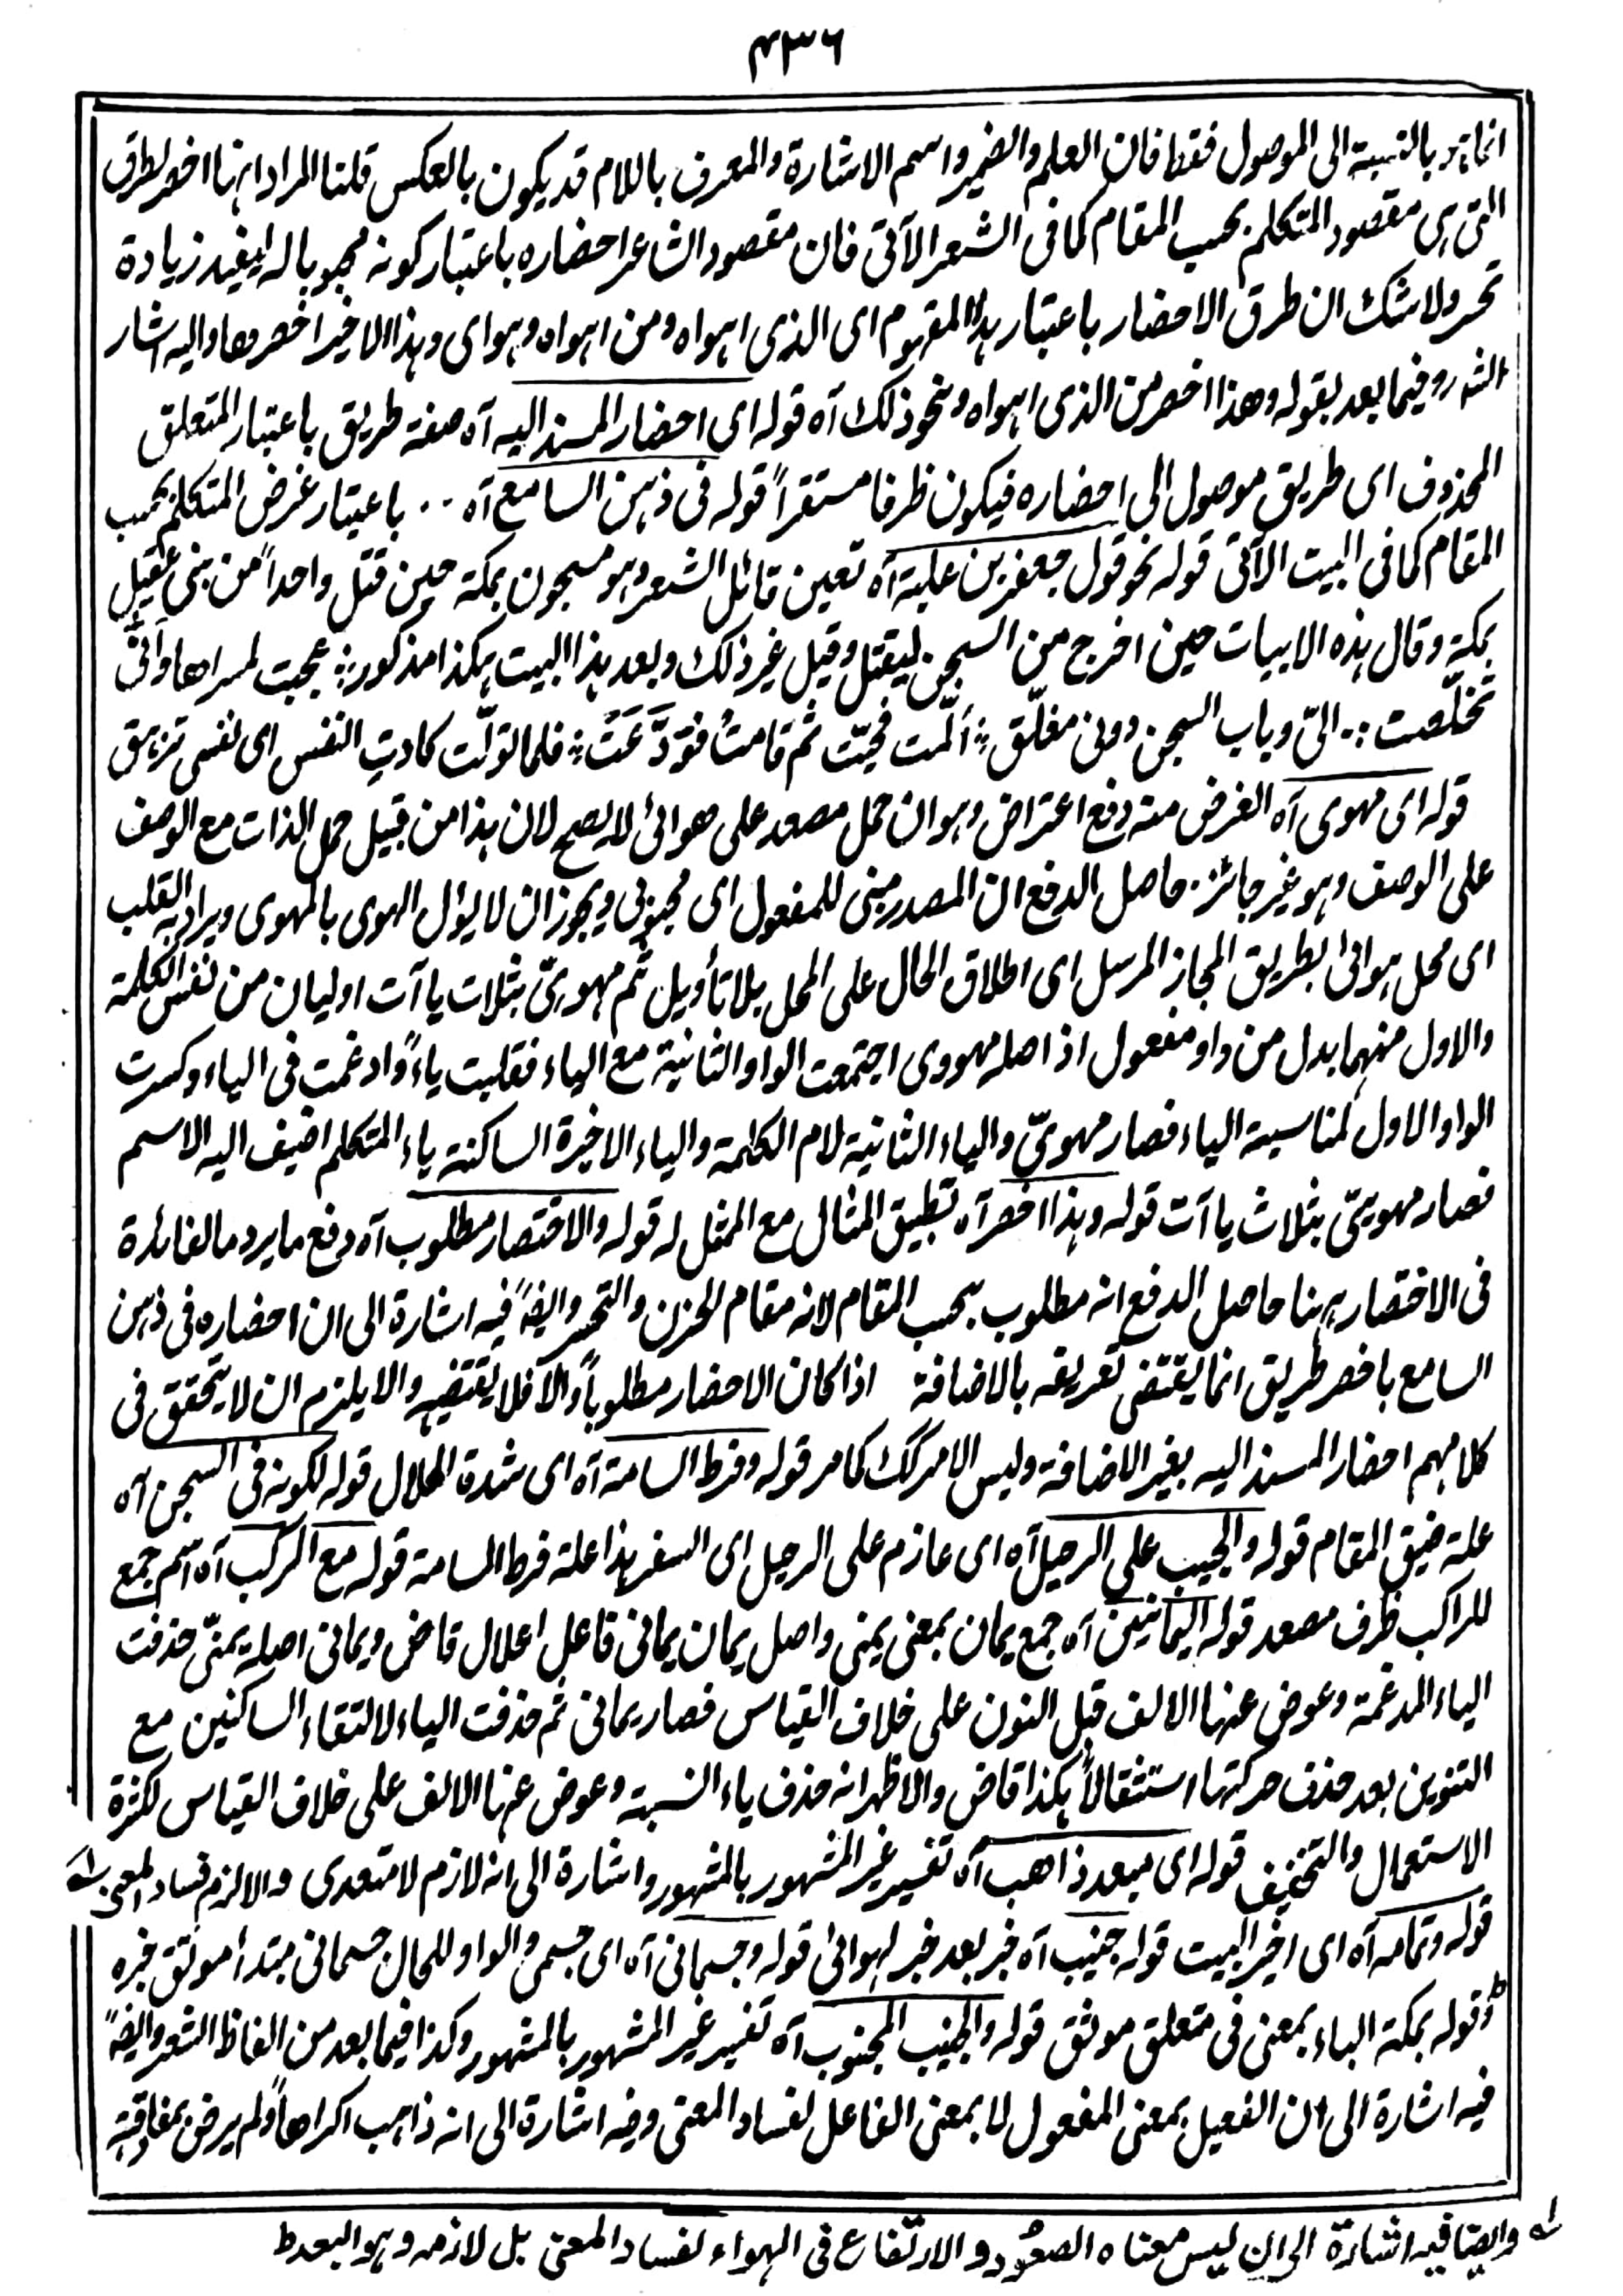 ۴۳۶
انما هو بالنسبة الى الموصول فقط فان العلم والضمير واسم الاشارة والمعرف باللام قد يكون بالعكس قلنا المراد انها اخصر لطرق
التى هى مقصود المتكلم بحسب المقام كما فى الشعر الآتى فان مقصود الشاعر احضاره باعتبار كونه محبوبا له ليفيد زيادة
تحسر ولا شك ان طرق الاحضار باعتبار هذا المفهوم اى الذى اهواه ومن اهواه وهواى وهذا الاخير اخصرها واليه اشار
الشه رو فيما بعد بقوله وهذا اخصر من الذى اهواه ونحو ذلك آه قوله اى احضار المسند اليه آه صفة طريق باعتبار المتعلق
المحذوف اى طريق موصول الى احضاره فيكون ظرفا مستقراً قوله فى ذهن السامع آه ۰۰ باعتبار غرض المتكلم بحسب
المقام كما فى البيت الآتى قوله نحو قول جعفر بن علبة آه تعين قائل الشعر وهو مسجون بمكة حين قتل واحداً من بنى عقيل
بمكة وقال هذه الابيات حين اخرج من السجن ليقتل وقيل غير ذلك وبعد هذا البيت هكذا مذكور ؞ عجبت لمسراها وانّى
تخلّصت ؞ الىّ وباب السجن دونى مغلّق ؞ المّت فحيّت ثم قامت فودّعت ؞ فلما تولّت كادت النفس اى نفسى تزهق
قوله اى مهوى آه الغرض منه دفع اعتراض وهو ان حمل مصعد على هوائ لا يصح لان هذا من قبيل حمل الذات مع الوصف
على الوصف وهو غير جائز ۰ حاصل الدفع ان المصدر مبنى للمفعول اى محبوبى ويجوز ان لا يؤل الهوى بالمهوى ويراد به القلب
اى محل هوائ بطريق المجاز المرسل اى اطلاق الحال على المحل بلا تأويل ثم مهويىّ بثلاث ياآت اوليان من نفس الكلمة
والاول منهما بدل من واو مفعول اذ اصله مهووى اجتمعت الواو الثانية مع الياء فقلبت ياءً وادغمت فى الياء وكسرت
الواو الاول لمناسبة الياء فصار مهوىّ والياء الثانية لام الكلمة والياء الاخيرة الساكنة ياء المتكلم اضيف اليه الاسم
فصار مهويىّ بثلاث ياآت قوله وهذا اخصر آه تطبيق المثال مع الممثل له قوله والاختصار مطلوب آه دفع ما يرد ما الفائدة
فى الاختصار ههنا حاصل الدفع انه مطلوب بحسب المقام لانه مقام الحزن والتحسر وايضاً فيه اشارة الى ان احضاره فى ذهن
السامع باخصر طريق انما يقتضى تعريفه بالاضافة اذا كان الاحضار مطلوباً والا فلا يقتضيه والا يلزم ان لا يتحقق فى
كلامهم احضار المسند اليه بغير الاضافة وليس الامر كك كما مر قوله وفرط السامة آه اى شدة الملال قوله لكونه فى السجن آه
علة ضيق المقام قوله والحبيب على الرحيل آه اى عازم على الرحيل اى السفر هذا علة فرط السامة قوله مع الركب آه اسم جمع
للراكب ظرف مصعد قوله اليمانين آه جمع يمان بمعنى يمنى واصل يمان يمانى فاعل اعلال قاض ويمانى اصله يمنىّ حذفت
الياء المدغمة وعوض عنها الالف قبل النون على خلاف القياس فصار يمانى ثم حذفت الياء لالتقاء الساكنين مع
التنوين بعد حذف حركتها استثقالاً هكذا قاض والاظهر انه حذف ياء النسبة وعوض عنها الالف على خلاف القياس لكثرة
الاستعمال والتخفيف قوله اى مبعد ذاهب آه تفسير غير المشهور بالمشهور واشارة الى انه لازم لا متعدى والا لزم فساد المعنى ؎
قوله وتمامه آه اى اخير البيت قوله جنيب آه خبر بعد خبر لهوائ قوله وجسمانى آه اى جسمى والواو للحال جسمانى مبتدأ موثق خبره
وقوله بمكة الباء بمعنى فى متعلق موثق قوله والجنيب المجنوب آه تفسير غير المشهور بالمشهور وكذا فيما بعد من الفاظ الشعر وايضاً
فيه اشارة الى ان الفعيل بمعنى المفعول لا بمعنى الفاعل لفساد المعنى وفيه اشارة الى انه ذاهب اكراهاً ولم يرض بمفارقته
؎ وايضا فيه اشارة الى ان ليس معناه الصعُود والارتفاع فى الهواء لفساد المعنى بل لازمه وهو البعد ط